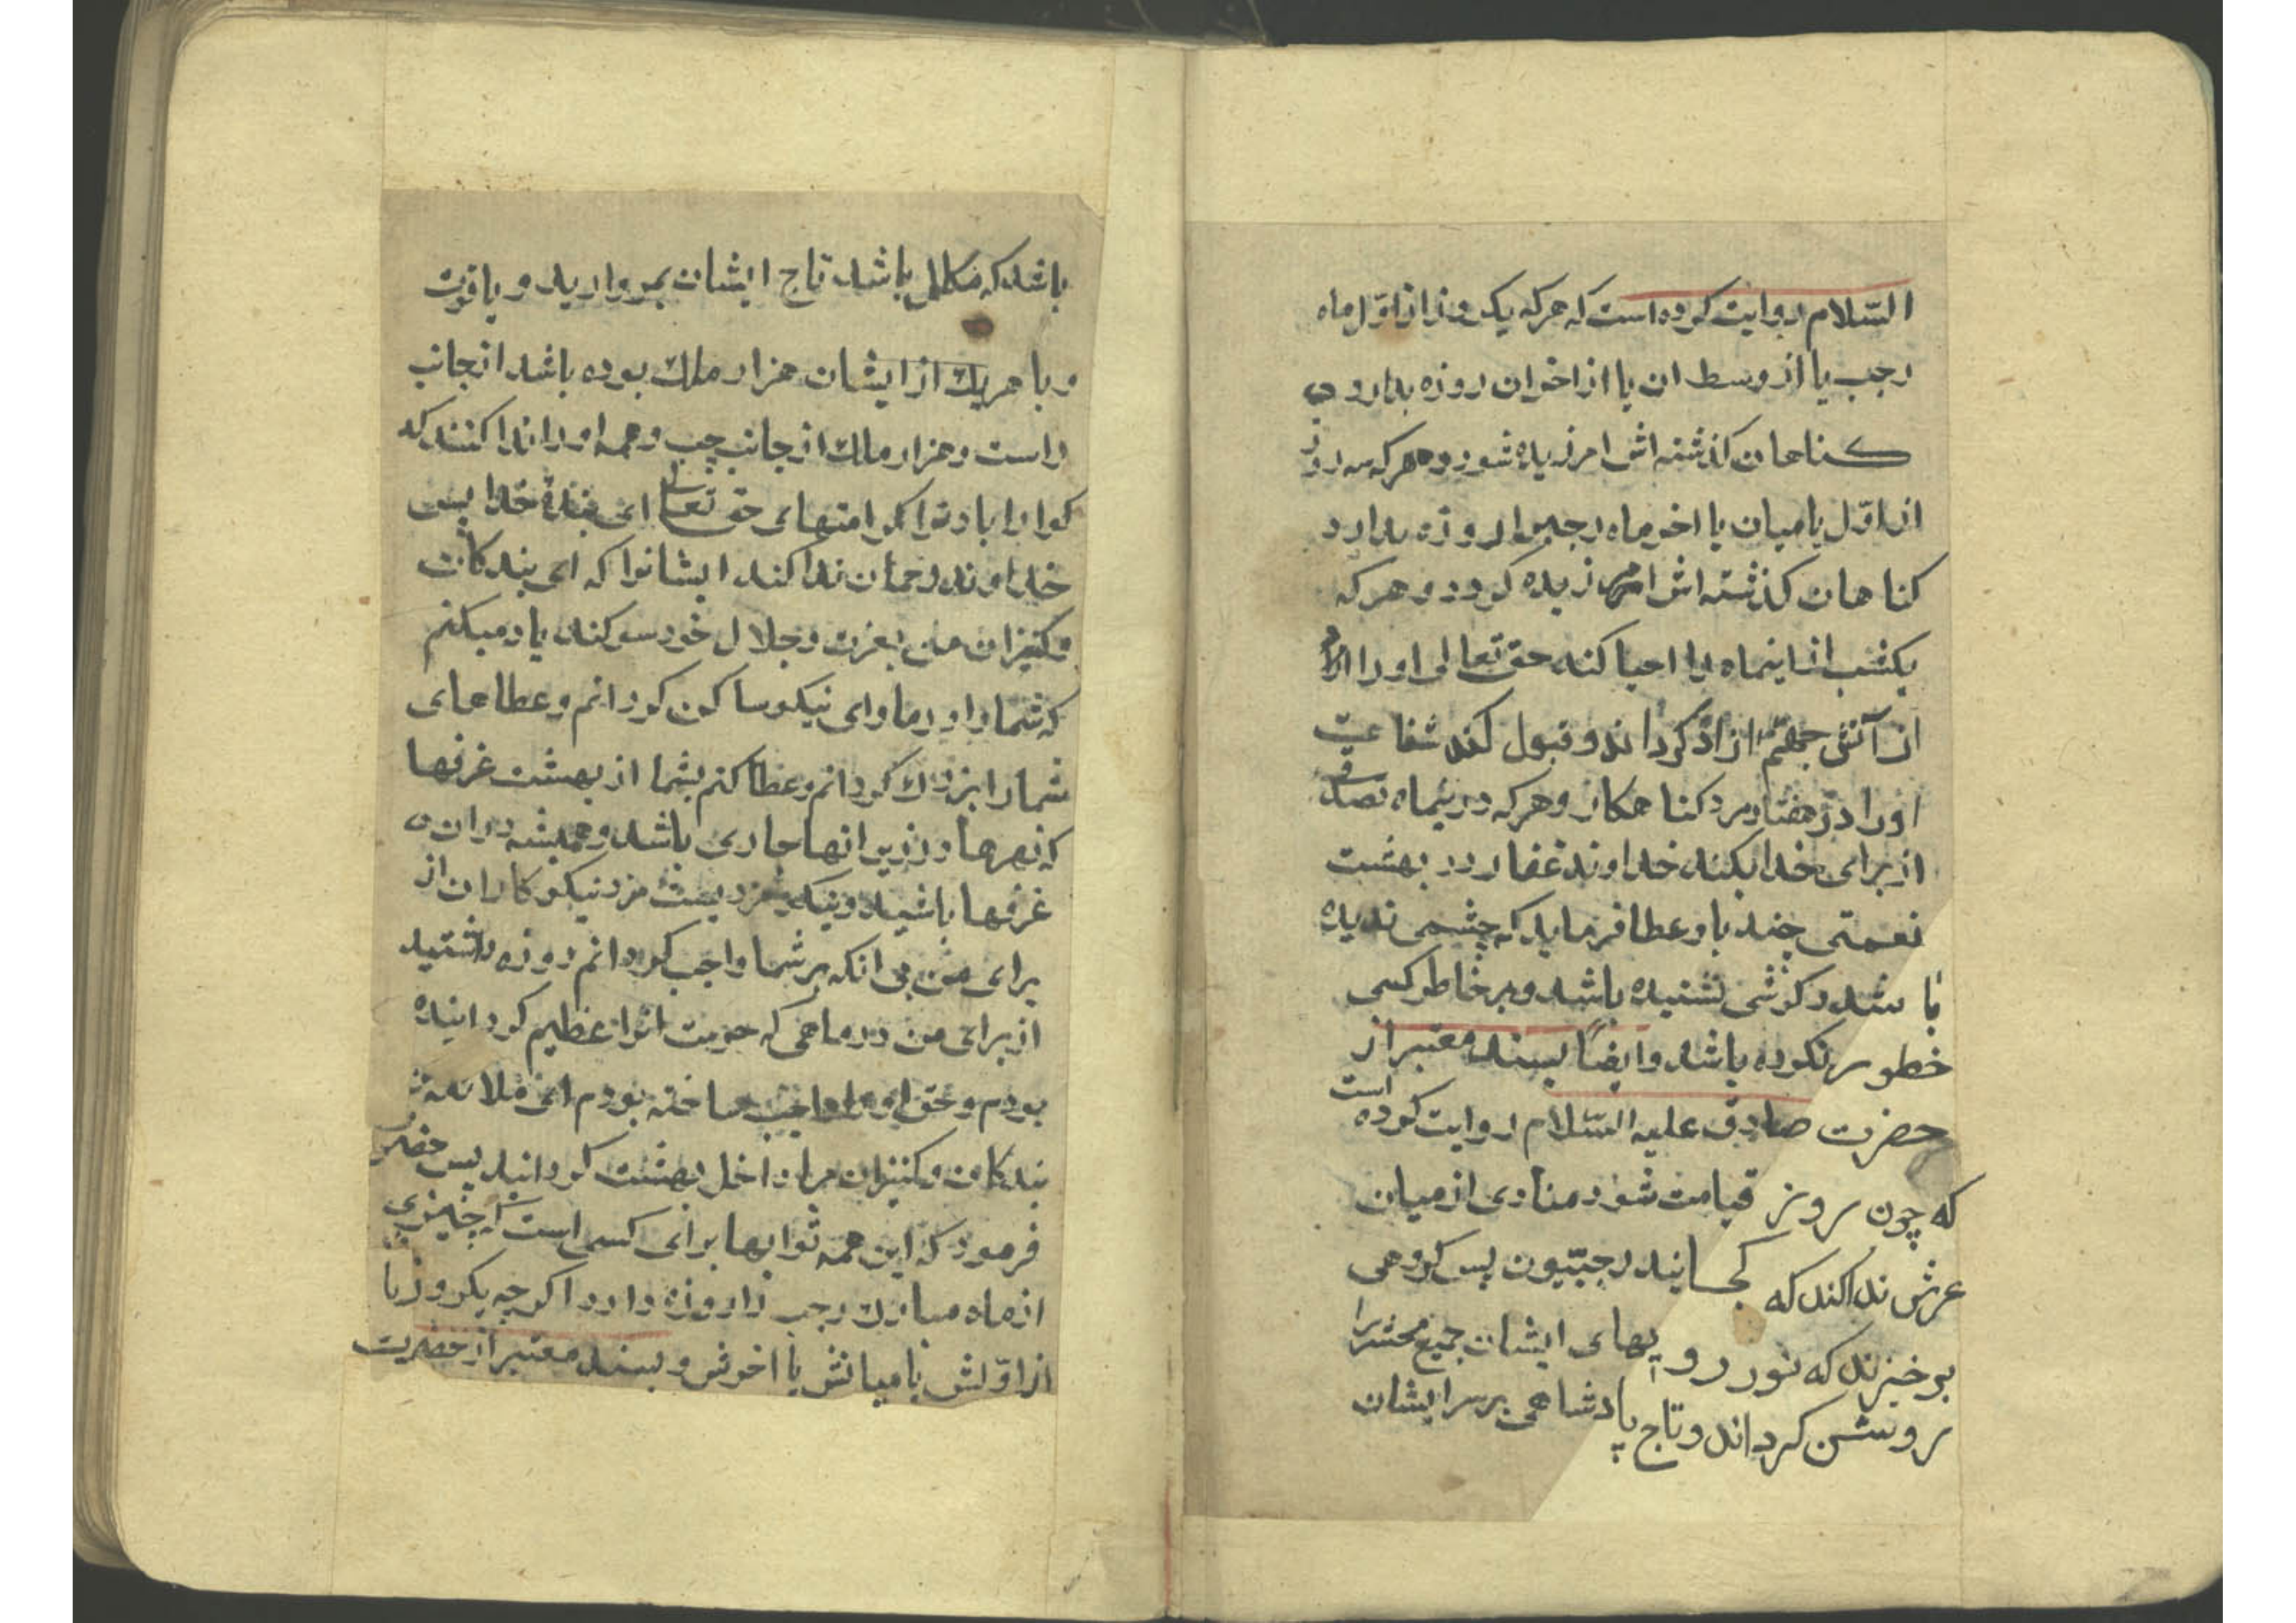 السّلام روایت کرده است که هرکه یکروز از اوّل ماه
رجب یا از وسط ان یا از اخر ان روزه بدارد
کناهان کذشته اش امرزیده شود و هرکه سه روز
از اوّل یا میان یا اخر ماه رجب را روزه بدارد
کناهان کذشته اش امرزیده کردد و هرکه
یکشب از اینماه را احیا کند حق تعالی او را
از آتش جهنّم ازاد کرداند و قبول کند شفاعت
او را در هفتاد مرد کناهکار و هرکه در ینماه تصدق
از برای خدا بکند خداوند غفار در بهشت
نعمتی چند باو عطا فرماید که چشمی ندیده
باشد و کوشی نشنیده باشد و بر خاطر کسی
خطور نکرده باشد وایضًا بسند معتبر از
حضرت صادق علیه السّلام روایت کرده است
که چون روز قیامت شود منادی از میان
عرش ندا کند که کجا نید رجبیّون پس کروهی
برخیزند که نور رو یهای ایشان جمیع محشر را
روشن کرداند و تاج پادشاهی بر سر ایشان
باشد که مکلل باشد تاج ایشان بمروارید و یاقوت
و با هریك از ایشان هزار ملك بوده باشد از جانب
راست و هزار ملك از جانب چپ و همه او را ندا کنند که
کوارا باد ترا کرامتهای حق تعالی ای بندۀ خدا پس
خداوند رحمان ندا کند ایشانرا که ای بندکان
و کنیزان من بعزت و جلال خود سوکند یاد میکنم
که شما را در ماوای نیکو ساکن کردانم و عطاهای
شما را بزرك کردانم و عطا کنم بشما از بهشت غرفها
که نهرها در زیر انها جاری باشد و همیشه در ان
غرفها باشید و نیکو مزدیست مزد نیکوکاران از
برای من بی انکه بر شما واجب کردانم روزه داشتید
از برای من در ماهی که حرمت انرا عظیم کردانیده
بودم و حق او را واجب ساخته بودم ای ملائکه
بندکان و کنیزان مرا داخل بهشت کردانید پس حضرت
فرمود که این همه ثوابها برای کسی است که چیزی
از ماه مبارك رجب را روزه دارد اکرچه یکروز با
از اوّلش یا میانش یا اخرش و بسند معتبر از حضرت